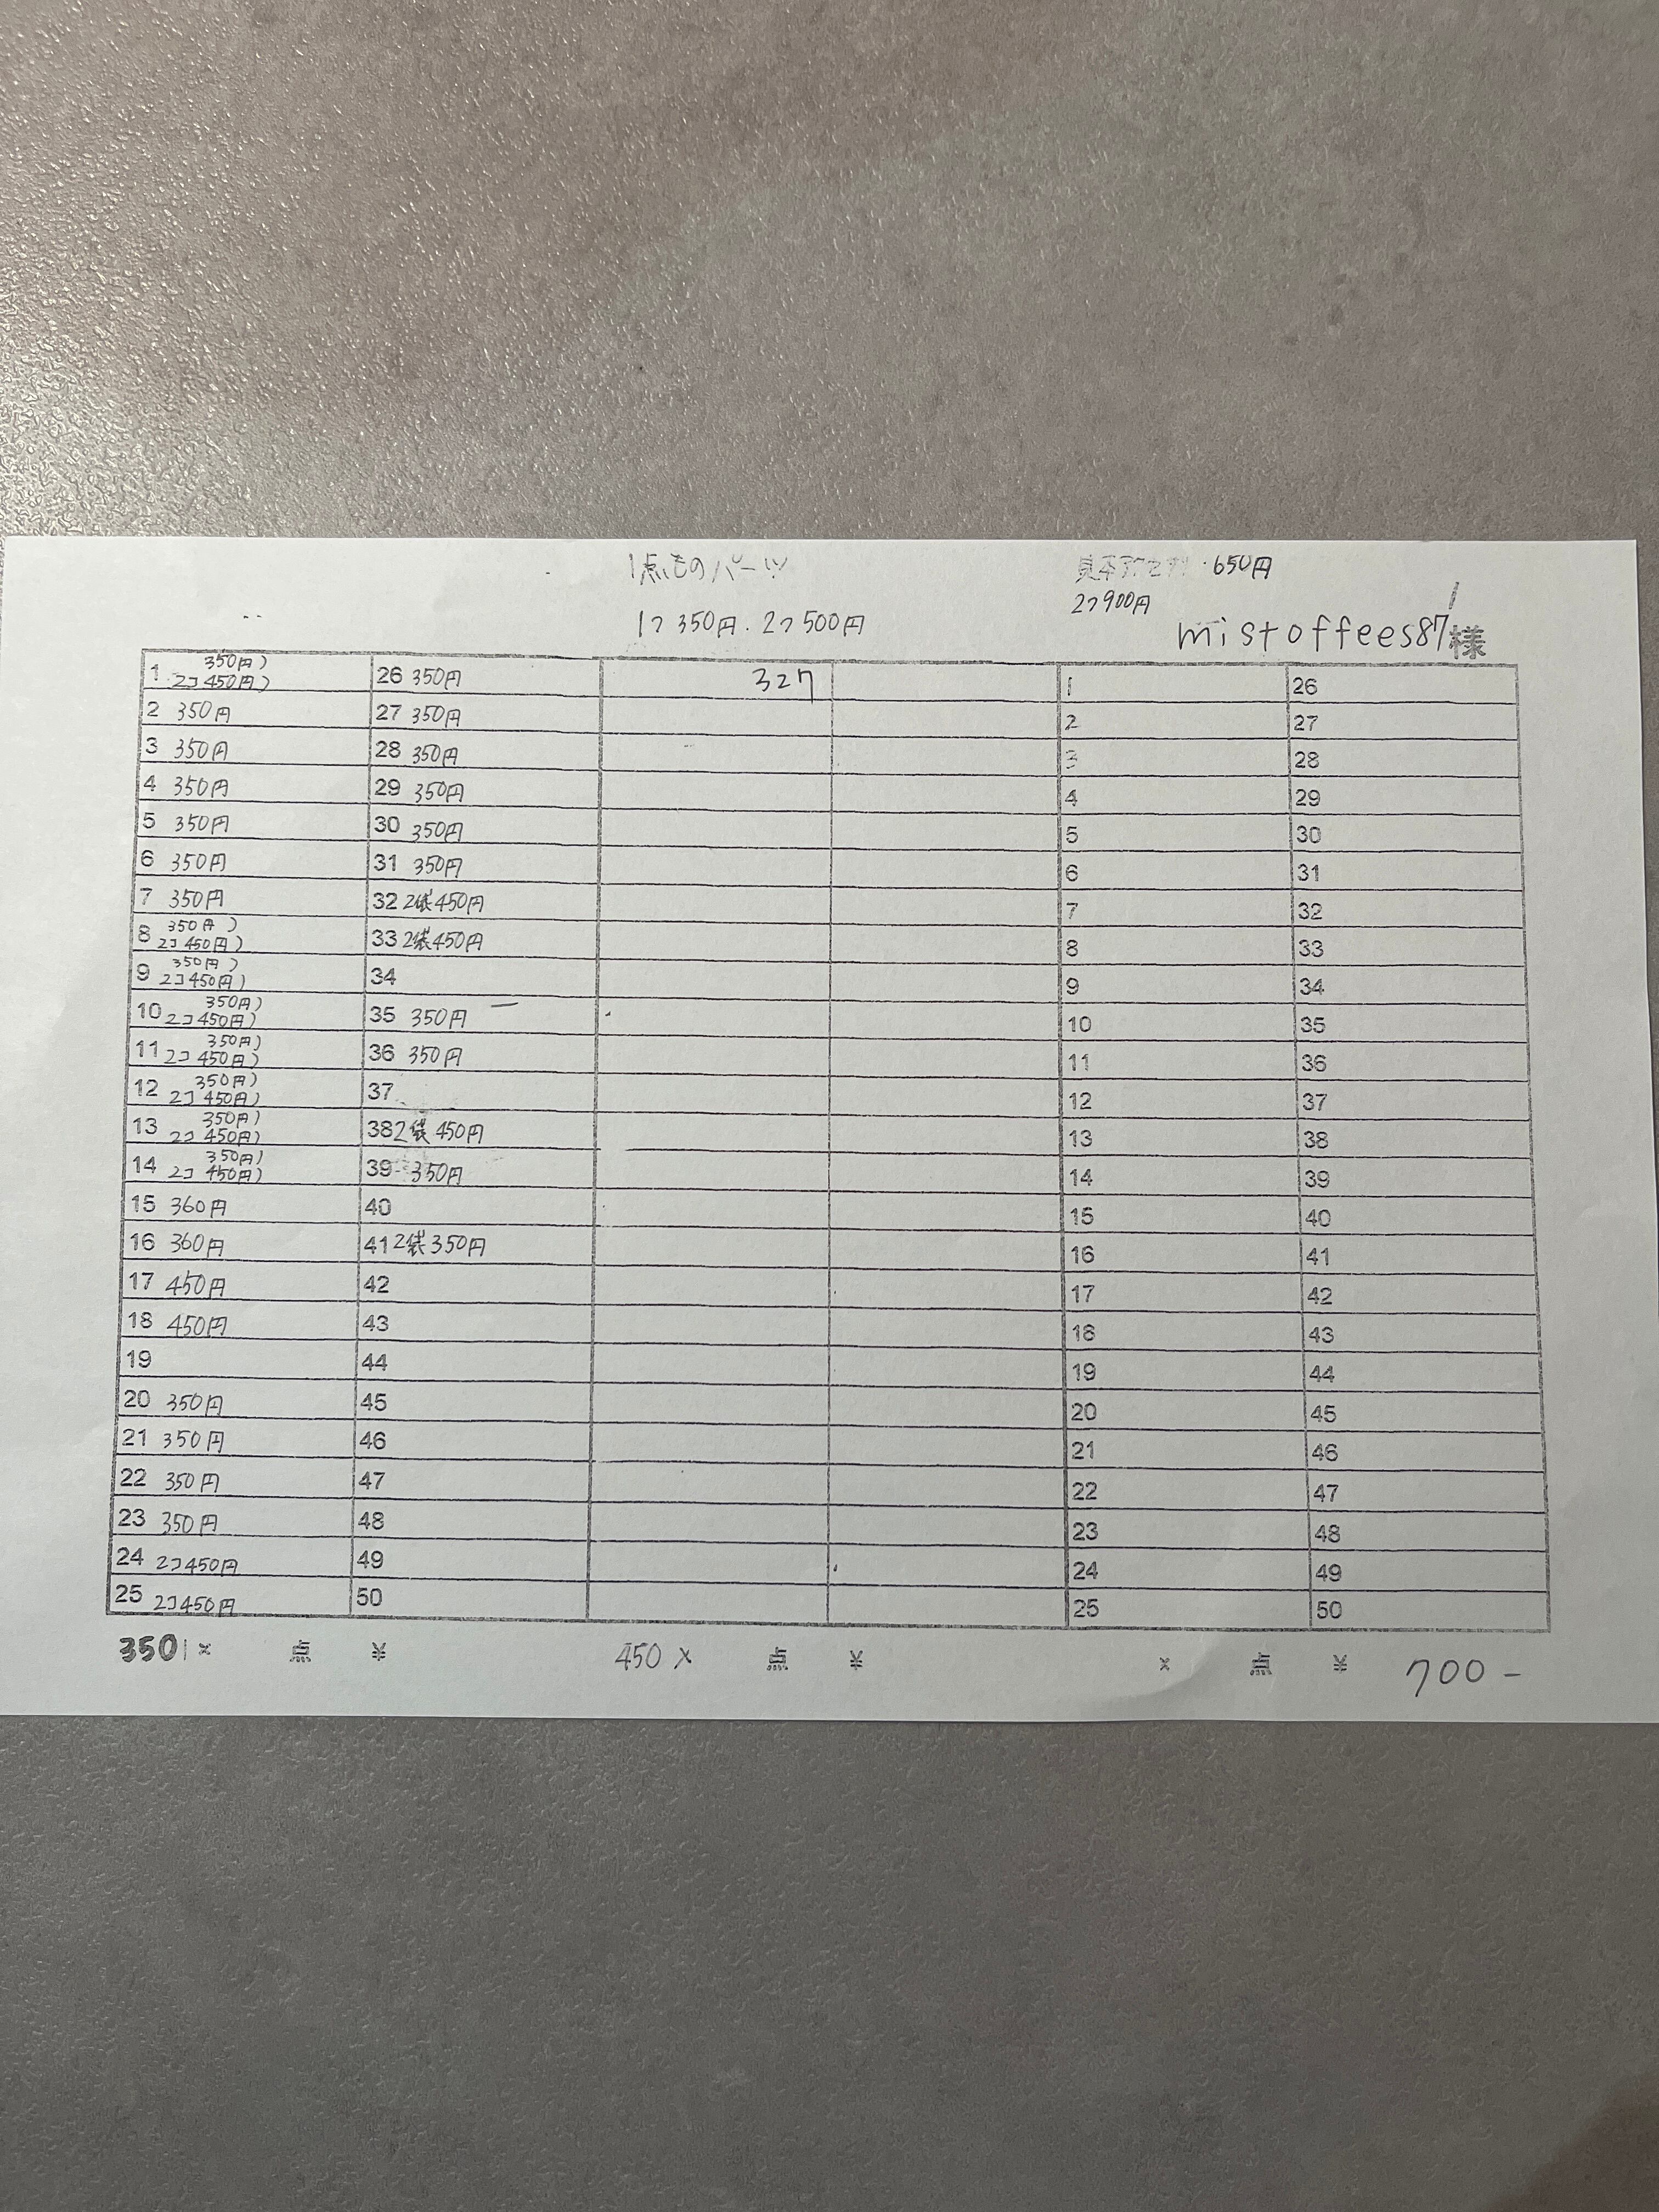 1点ものパーツ
1つ 350円. 2つ 500円
・650円
2つ900円
mistoffees87様
1 350円) 2コ450円) 26 350円 327 1 26
2 350円 27 350円 2 27
3 350円 28 350円 3 28
4 350円 29 350円 4 29
5 350円 30 350円 5 30
6 350円 31 350円 6 31
7 350円 32 2袋450円 7 32
8 350円) 2コ450円) 33 2袋450円 8 33
9 350円) 2コ450円) 34 9 34
10 350円) 2コ450円) 35 350円 10 35
11 350円) 2コ450円) 36 350円 11 36
12 350円) 2コ450円) 37 12 37
13 350円) 2コ450円) 38 2袋 450円 13 38
14 350円) 2コ450円) 39 350円 14 39
15 360円 40 15 40
16 360円 41 2袋350円 16 41
17 450円 42 17 42
18 450円 43 18 43
19 44 19 44
20 350円 45 20 45
21 350円 46 21 46
22 350円 47 22 47
23 350円 48 23 48
24 2コ450円 49 24 49
25 2コ450円 50 25 50
350 × 点 ¥ 450 × 点 ¥ × 点 ¥ 700-